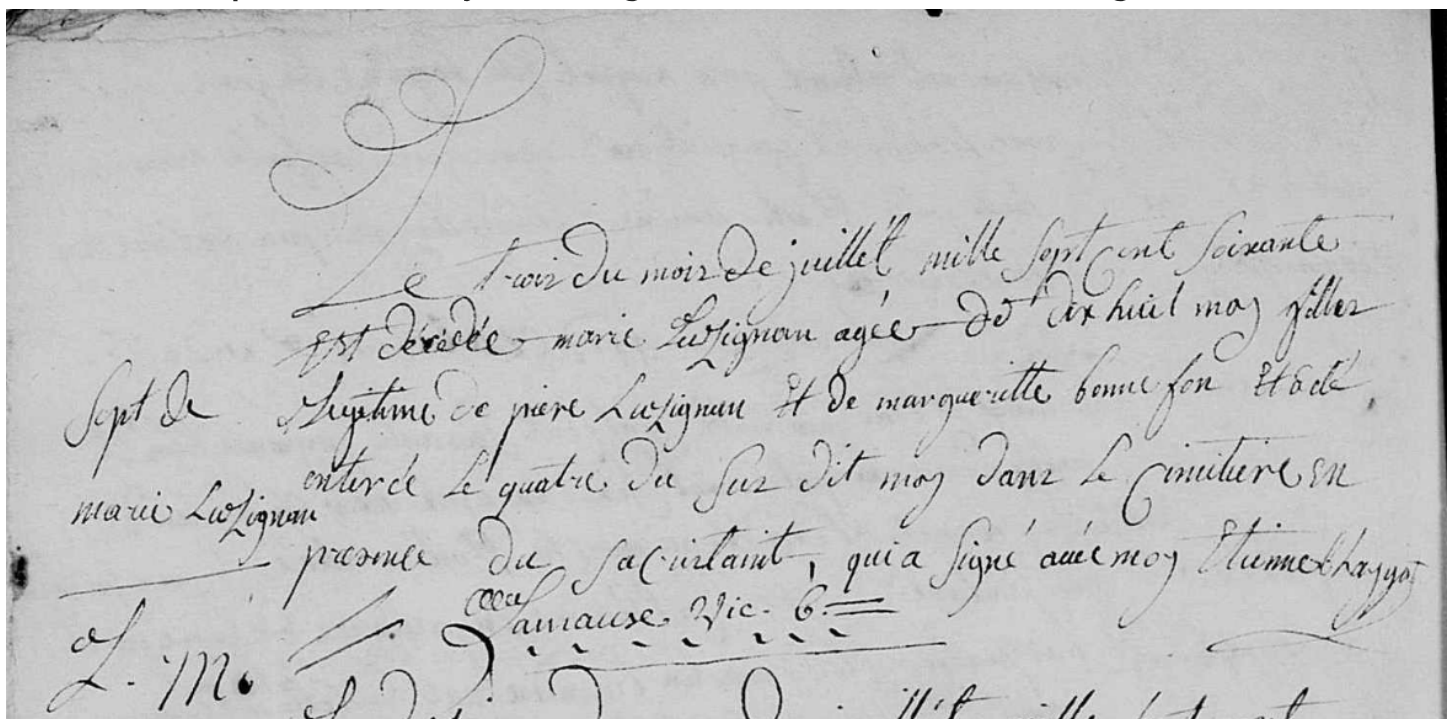 Le trois du mois de juillet mille sept cent soixante
est décédé marie Luzignan agée de dix huit moy filles
legitime de piere Luzignan Et de margueritte bonne fon Et a été
enterée le quatre du sus dit moy dans le Cimitiere en
presence du sacristaint, qui a signé avec moy Etienne
Lamause Vic. 6.
Sept de
marie Luzignan
L. M.